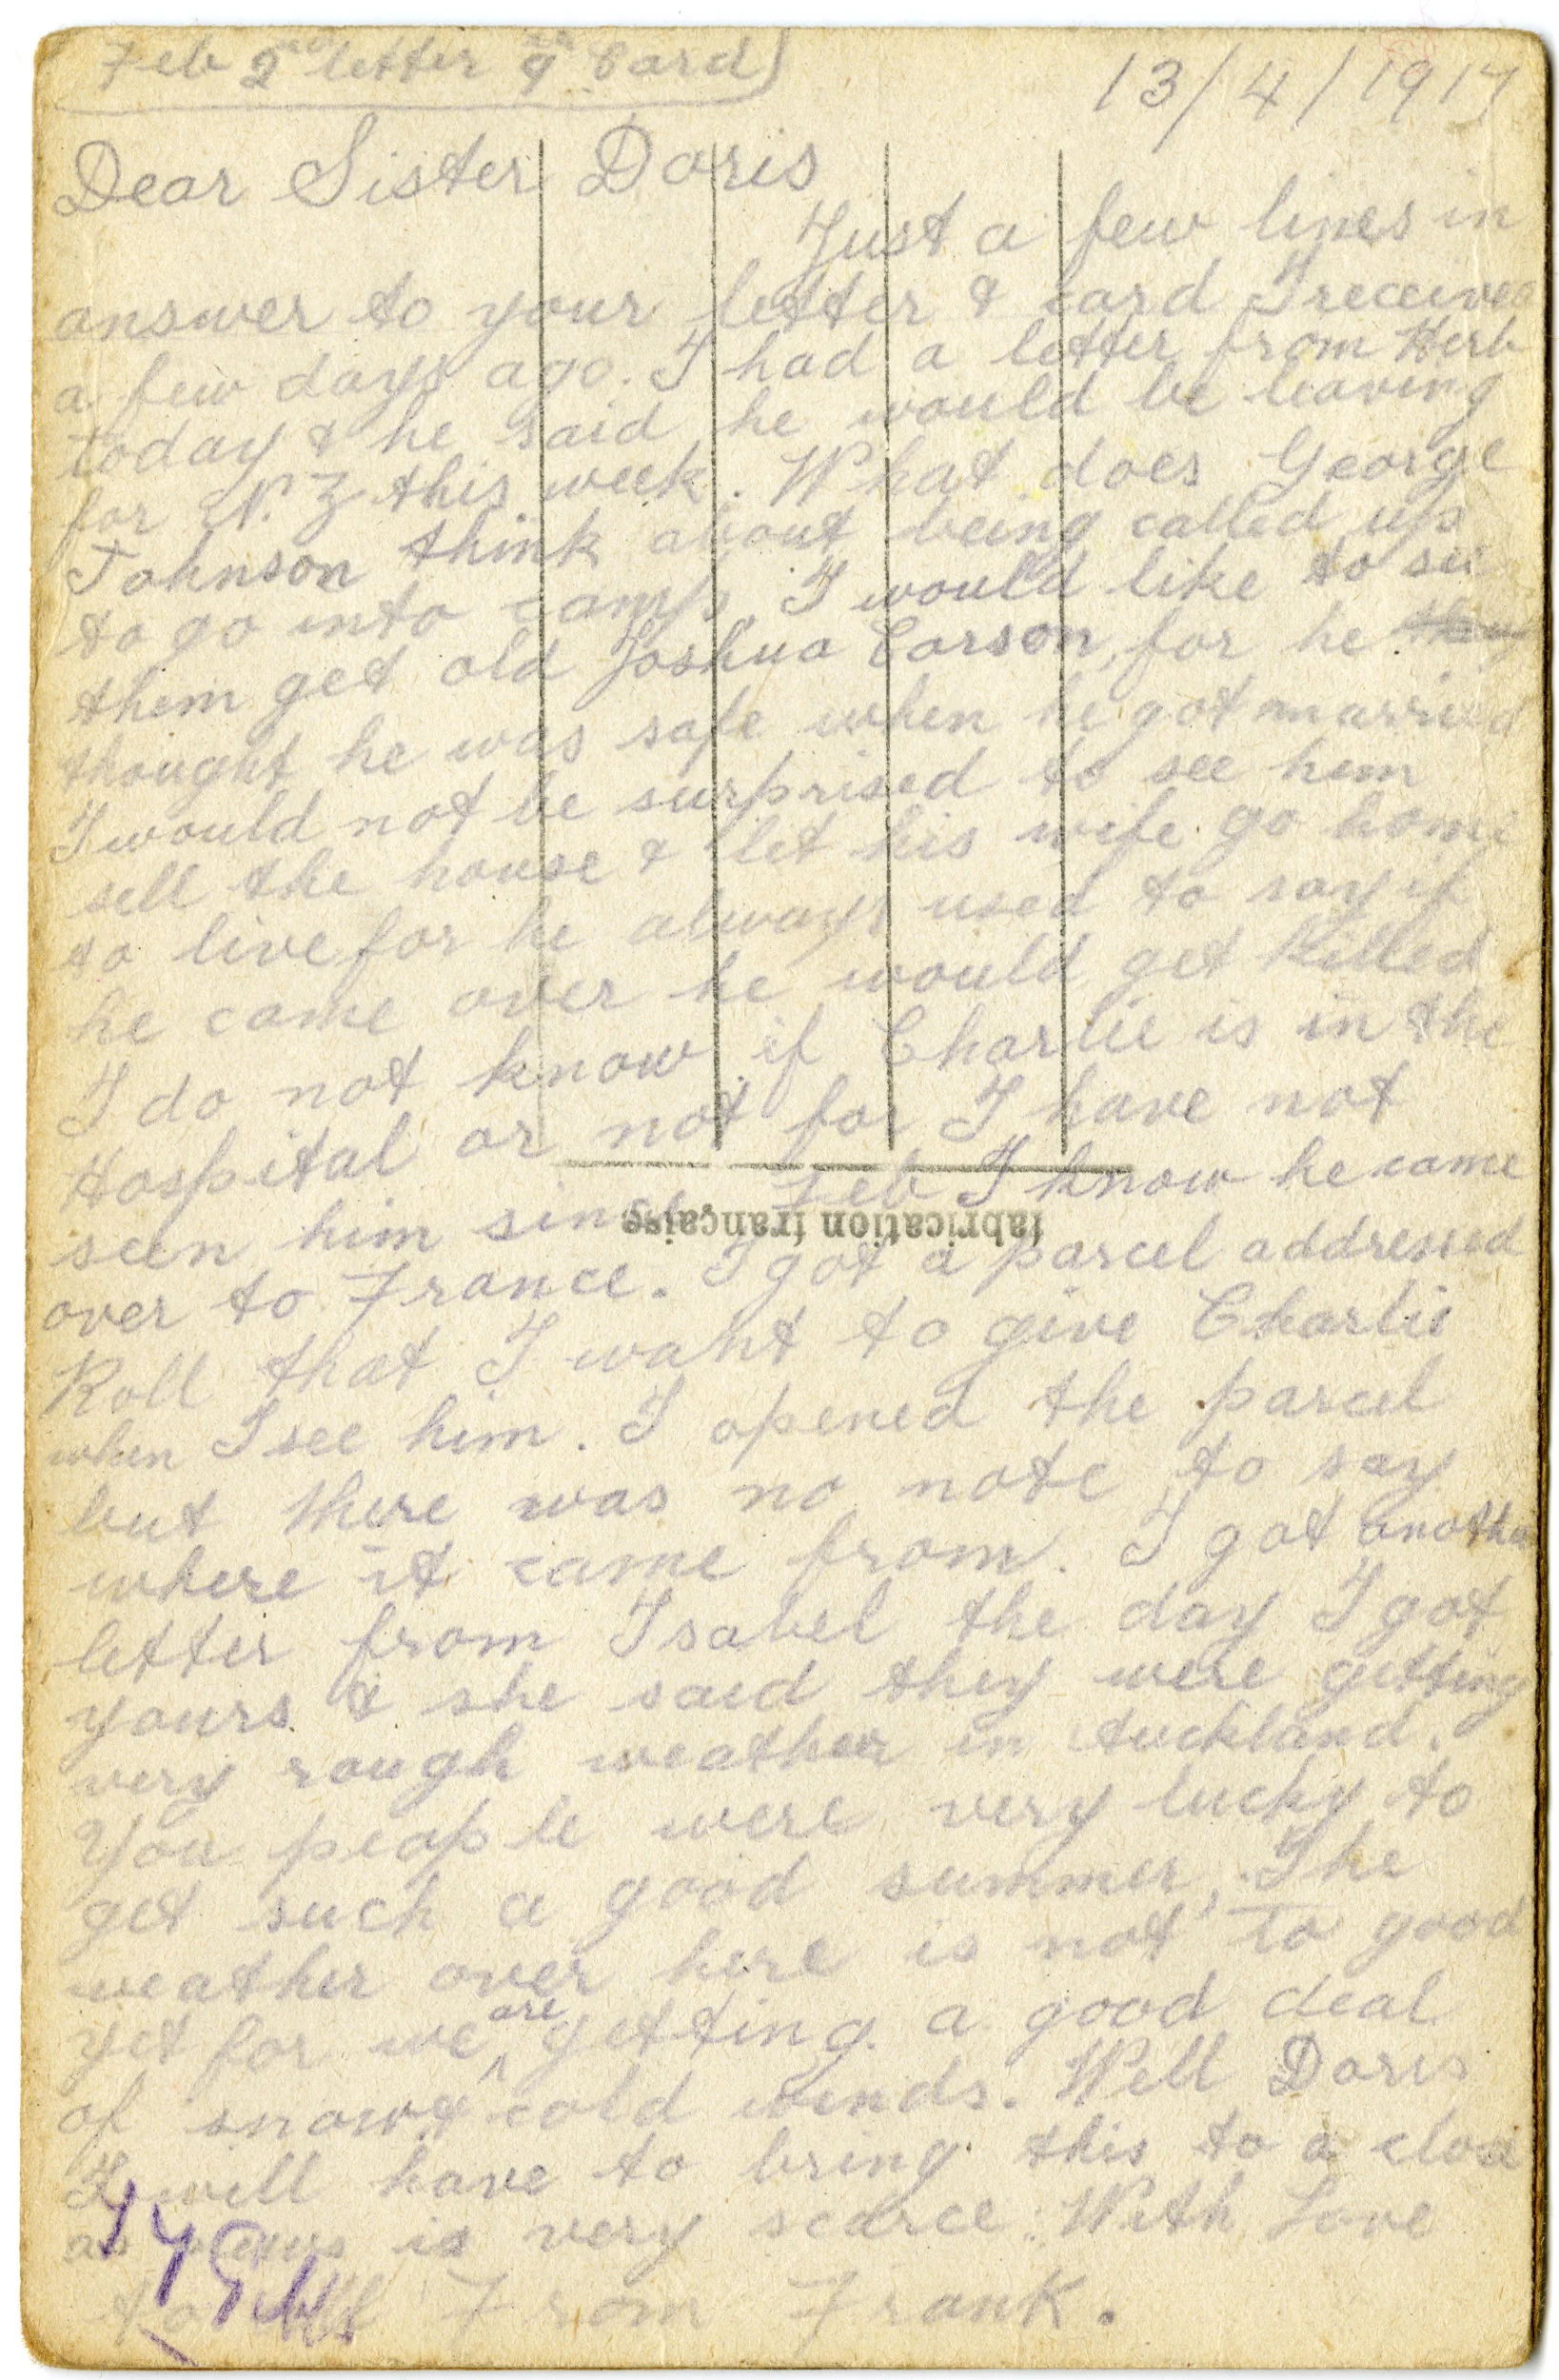 Feb 2nd letter 9th Card
13/4/1917
Dear Sister Doris
Just a few lines in
answer to your letter & card I received
a few days ago. I had a letter from Herb
today & he said he would be leaving
for N.Z this week. What does George
Johnson think about being called up
to go into camp, I would like to see
them get old Joshua Carson, for he they
thought he was safe when he got married
I would not be surprised to see him
sell the house & let his wife go home
to live for he always used to say if
he came over he would get killed
I do not know if Charlie is in the
Hospital or not for I have not
seen him since Feb I know he came
fabrication française
over to France. I got a parcel addressed
Roll that I want to give Charlie
when I see him. I opened the parcel
but there was no note to say
where it came from. I got another
letter from Isabel the day I got
yours & she said they were getting
very rough weather in Auckland.
You people were very lucky to
get such a good summer, The
weather over here is not to good
yet for we are getting a good deal
of snow & cold winds. Well Doris
I will have to bring this to a close
as news is very scarce. With Love
to all From Frank.